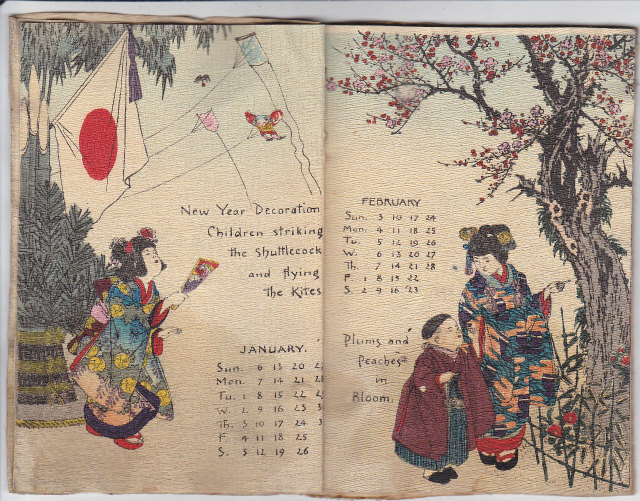 New Year Decoration
Children striking
the Shuttlecock
and flying
the Kites
JANUARY.
Sun. 6 13 20
Mon. 7 14 21
Tu. 1 8 15 22
W. 2 9 16 23
Th. 3 10 17 24
F. 4 11 18 25
S. 5 12 19 26
FEBRUARY
Sun. 3 10 17 24
Mon. 4 11 18 25
Tu. 5 12 19 26
W. 6 13 20 27
Th. 7 14 21 28
F. 1 8 15 22
S. 2 9 16 23
Plums and
Peaches
in
Bloom.